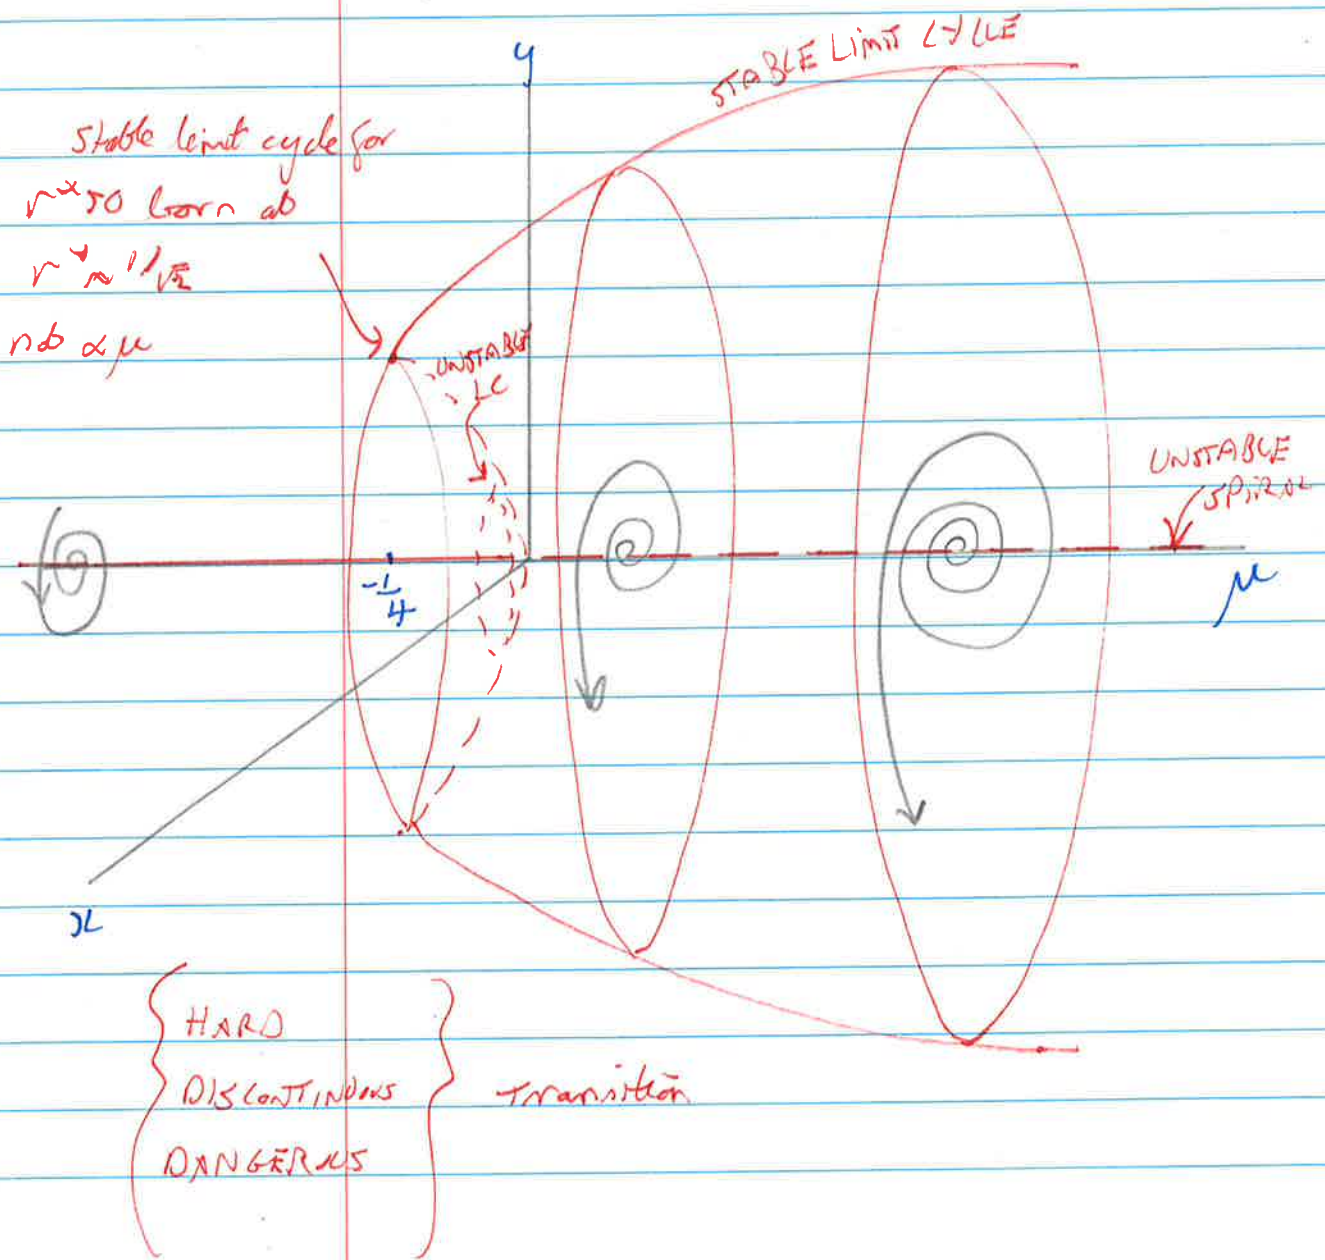 y
STABLE LIMIT CYCLE
Stable limit cycle for
r* > 0 born at
r* ≈ 1/√2
nb ∝ μ
UNSTABLE
LC
UNSTABLE
SPIRAL
-1/4
μ
x
HARD
DISCONTINUOUS
DANGEROUS
transition